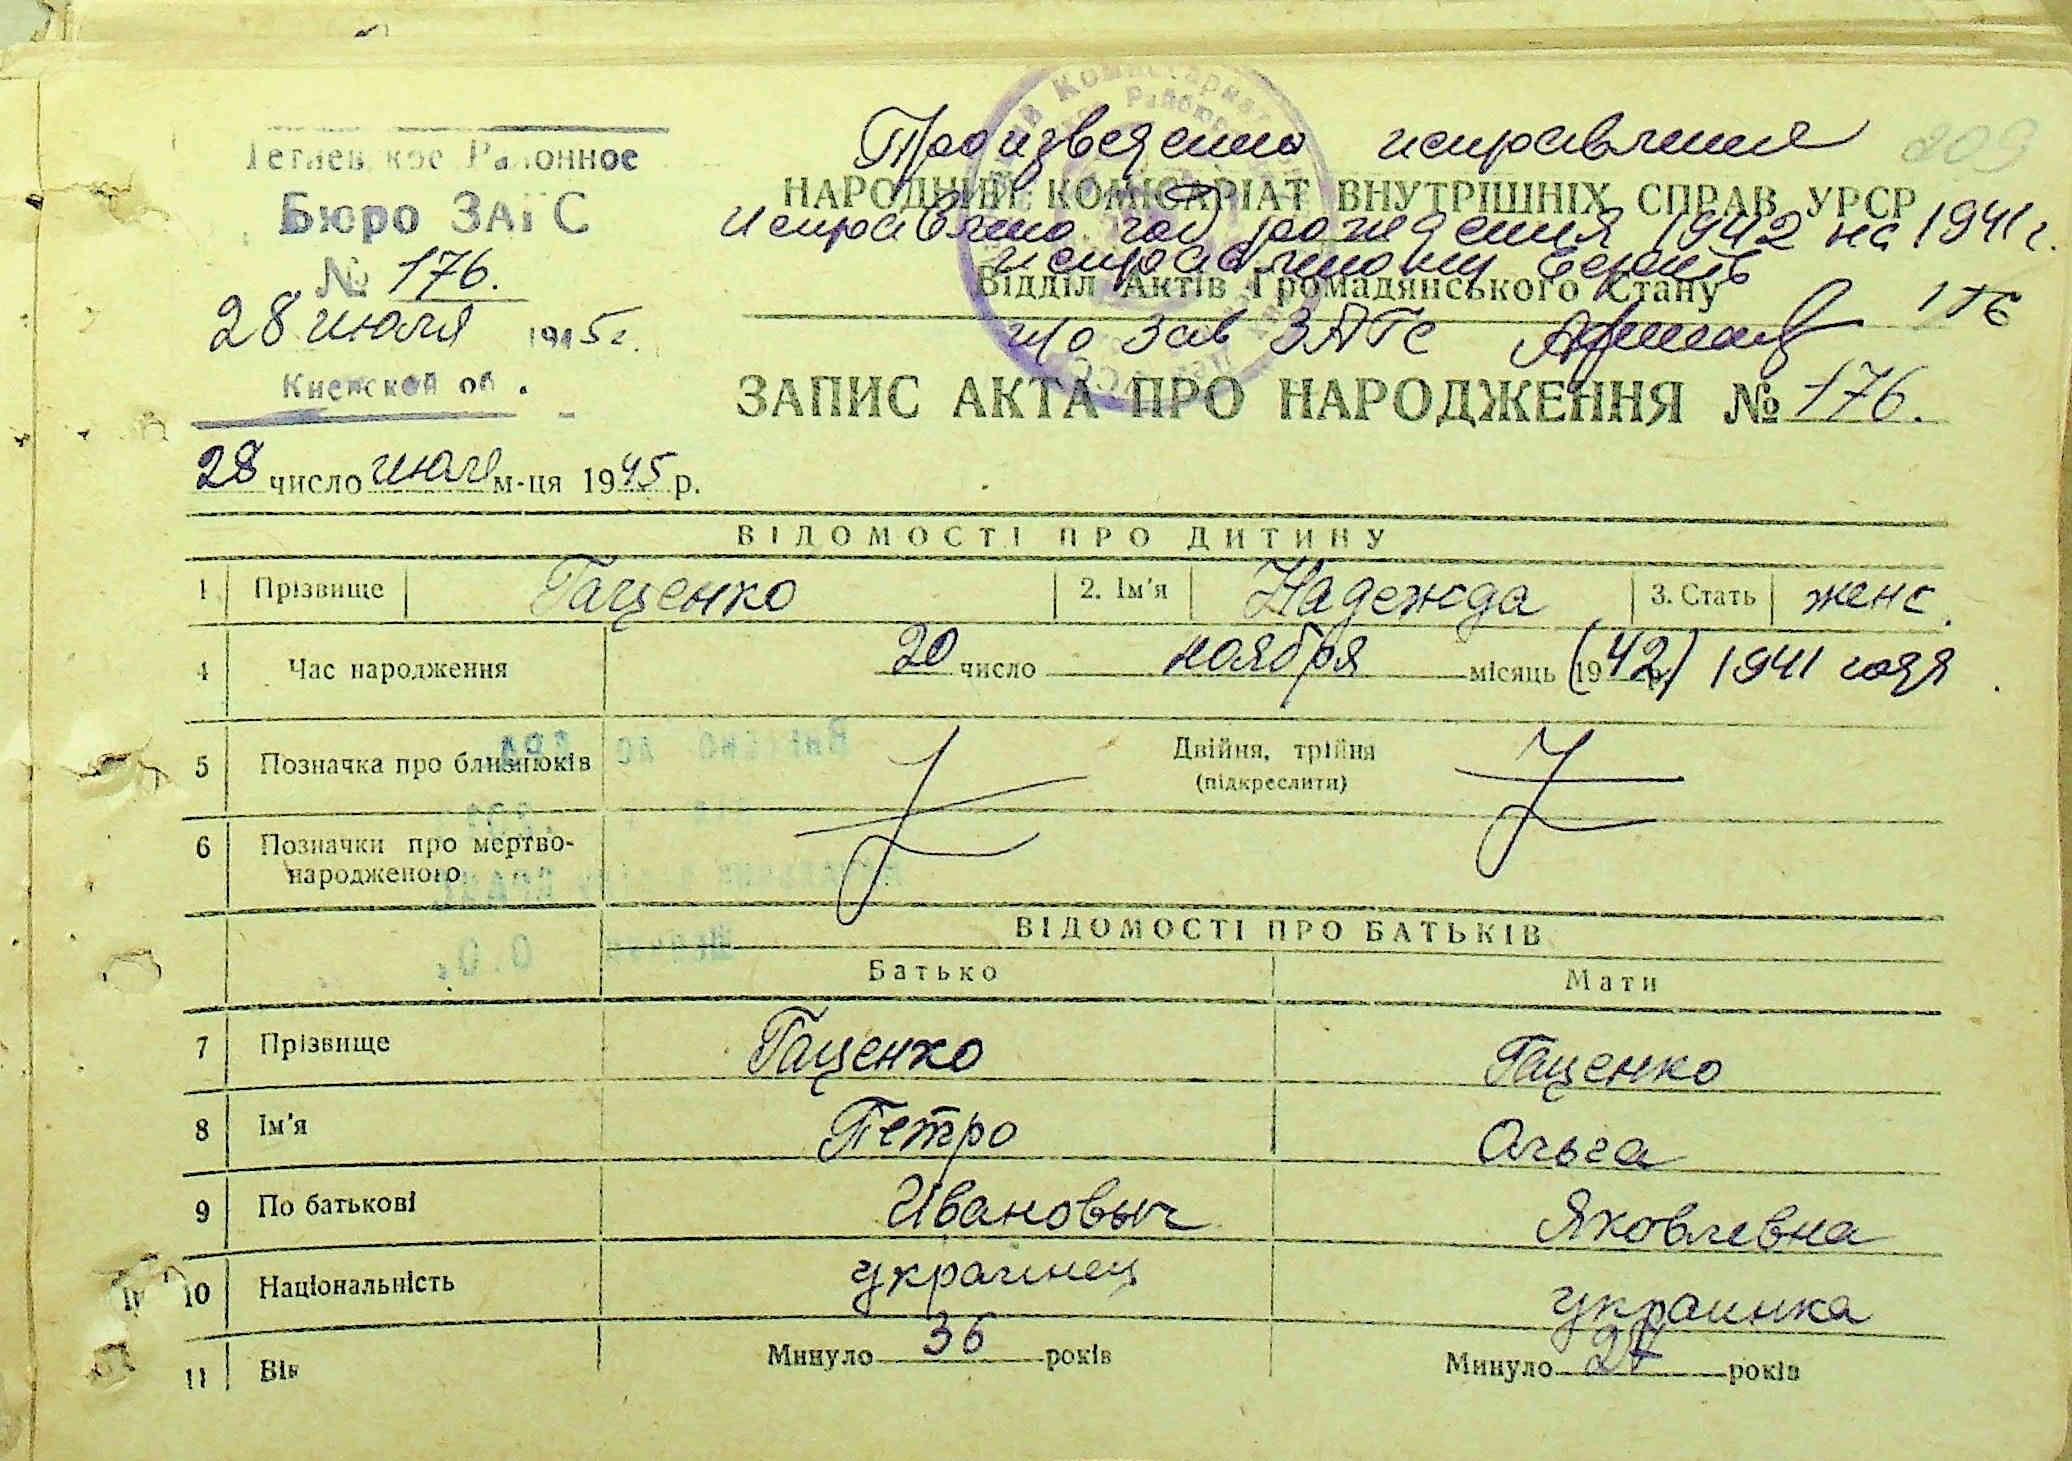 Районное
Бюро ЗАГС
№ 176.
28 июля 1945 г.
Киевской об.
Произведены исправления
209
НАРОДНИЙ КОМІСАРІАТ ВНУТРІШНІХ СПРАВ УРСР
Исправлено год рождения 1942 на 1941 г.
исправленому верить
Відділ Актів Громадянського Стану
Зав ЗАГС
ЗАПИС АКТА ПРО НАРОДЖЕННЯ № 176.
28 число июля м-ця 1945 р.
ВІДОМОСТІ ПРО ДИТИНУ
1 Прізвище Гаценко 2. Ім'я Надежда 3. Стать женс.
4 Час народження 20 число ноября місяць (1942 р.) 1941 года
5 Позначка про близнюків Двійня, трійня
(підкреслити)
6 Позначки про мертво-
народженого
ВІДОМОСТІ ПРО БАТЬКІВ
Батько Мати
7 Прізвище Гаценко Гаценко
8 Ім'я Петро Ольга
9 По батькові Ивановыч Яковлевна
10 Національність украинец украинка
11 Вік Минуло 36 років Минуло 27 років